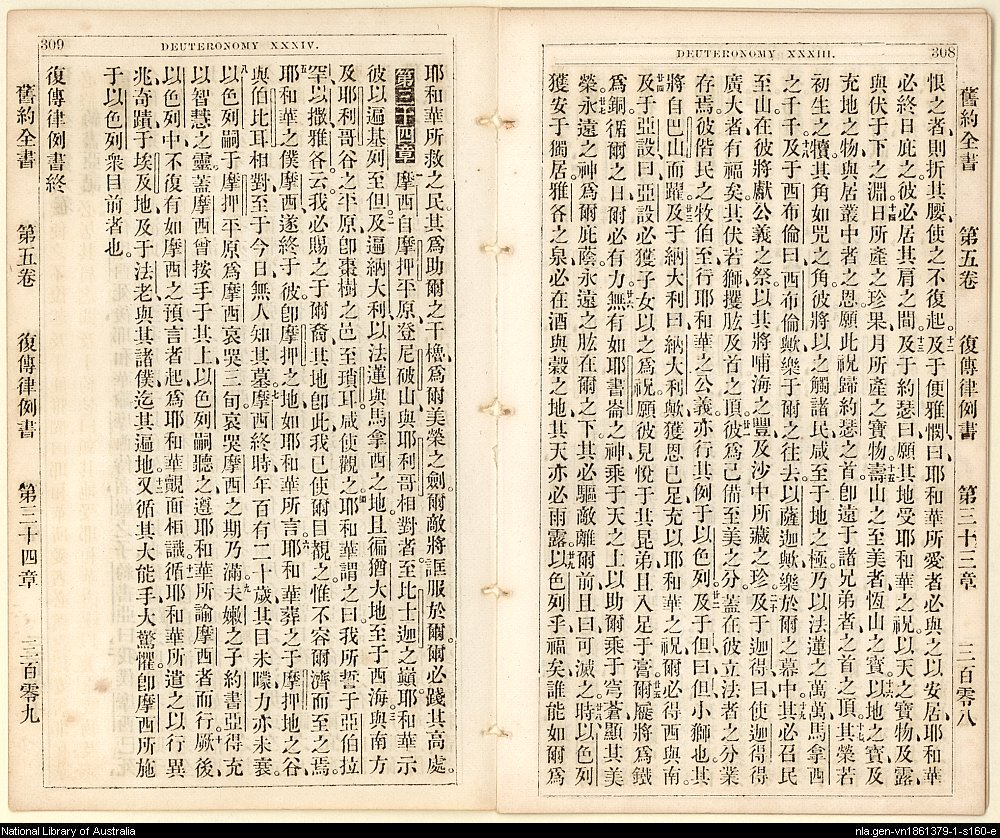 308
DEUTERONOMY XXXIII.
舊約全書 第五卷 復傳律例書 第三十三章 三百零八
恨之者、則折其腰、使之不復起。十二及于便雅憫曰、耶和華所愛者必與之以安居、耶和華
必終日庇之、彼必居其肩之間。十三及于約瑟曰、願其地受耶和華之祝、以天之寶物及露、
與伏于下之淵、十四日所產之珍果、月所產之寶物、十五壽山之至美者、恆山之寶、十六以地之寶及
充地之物、與居叢中者之恩、願此祝歸約瑟之首、卽遠于諸兄弟者之首之頂。十七其榮若
初生之犢、其角如兕之角、彼將以之觸諸民、咸至于地之極、乃以法蓮之萬萬、馬拿西
之千千。十八及于西布倫曰、西布倫歟、樂于爾之往去、以薩迦歟、樂於爾之幕中。十九其必召民
至山、在彼將獻公義之祭、以其將哺海之豐、及沙中所藏之珍。二十及于迦得曰、使迦得得
廣大者有福矣、其伏若獅、攫肱及首之頂。廿一彼爲己備至美之分、蓋在彼立法者之分業
存焉、彼偕民之牧伯至、行耶和華之公義、亦行其例于以色列。廿二及于但曰、但小獅也、其
將自巴山而躍。廿三及于納大利曰、納大利歟、獲恩已足、充以耶和華之祝、爾必得西與南。
廿四及于亞設曰、亞設必獲子女、以之爲祝、願彼見悅于其昆弟、且入足于膏。廿五爾屨將爲鐵
爲銅、循爾之日、爾必有力。廿六無有如耶書崙之神、乘于天之上、以助爾、乘于穹蒼、顯其美
榮。廿七永遠之神爲爾庇蔭、永遠之肱在爾之下、其必驅敵離爾前、且曰、可滅之。廿八時以色列
獲安于獨居、雅各之泉必在酒與穀之地、其天亦必雨露。廿九以色列乎、福矣、誰能如爾、爲
309
DEUTERONOMY XXXIV.
耶和華所救之民、其爲助爾之干櫓、爲爾美榮之劍、爾敵將誑服於爾、爾必踐其高處。
第三十四章 摩西自摩押平原登尼破山、與耶利哥相對者、至比士迦之巔、耶和華示
彼以遍基列至但、二及遍納大利、以法蓮與馬拿西之地、且徧猶大地、至于西海、三與南方
及耶利哥谷之平原、卽棗樹之邑、至瑣耳、咸使觀之。四耶和華謂之曰、我所誓于亞伯拉
罕、以撒、雅各、云、我必賜之于爾裔、其地卽此、我已使爾目覩之、惟不容爾濟而至之焉。
五耶和華之僕摩西、遂終于彼、卽摩押之地、如耶和華所言。六耶和華葬之于摩押地之谷、
與伯比耳相對、至于今日、無人知其墓。七摩西終時、年百有二十歲、其目未矇、力亦未衰。
八以色列嗣于摩押平原、爲摩西哀哭三旬、哀哭摩西之期乃滿。九夫嫩之子約書亞得充
以智慧之靈、蓋摩西曾按手于其上、以色列嗣聽之、遵耶和華所諭摩西者而行。十厥後
以色列中、不復有如摩西之預言者起、爲耶和華覿面相識、十一循耶和華所遣之以行異
兆奇蹟于埃及地、及于法老與其諸僕、迄其遍地、十二又循其大能手、大驚懼、卽摩西所施
于以色列衆目前者也。
復傳律例書終
舊約全書 第五卷 復傳律例書 第三十四章 三百零九
National Library of Australia
nla.gen-vn1861379-1-s160-e